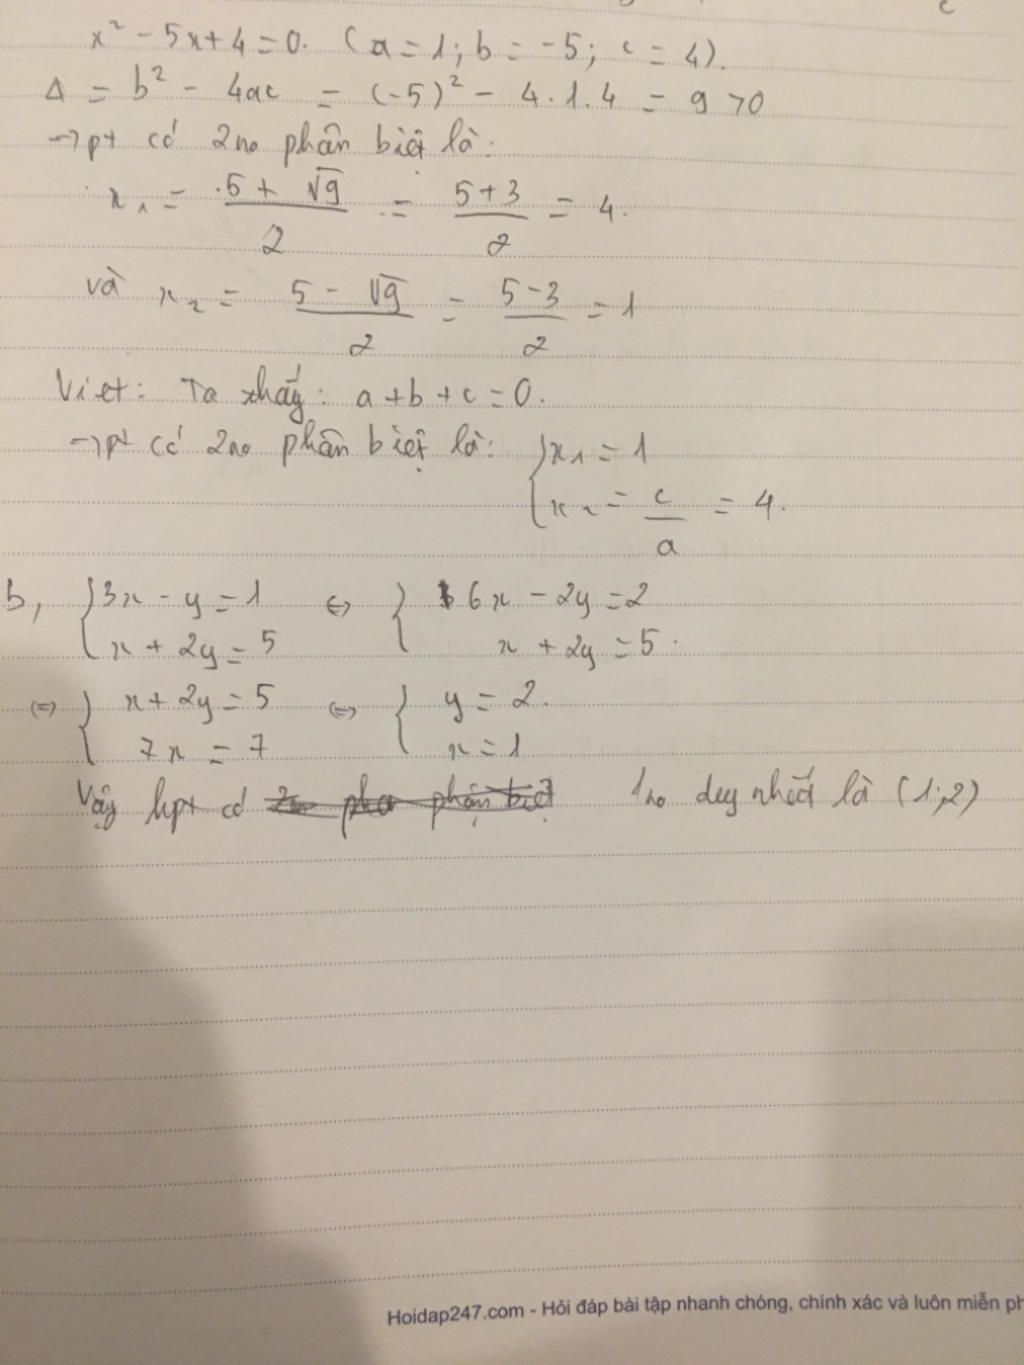 x² - 5x + 4 = 0. (a = 1; b = -5; c = 4).
Δ = b² - 4ac = (-5)² - 4.1.4 = 9 > 0
→ pt có 2no phân biệt là:
x₁ = (5 + √9)/2 = (5+3)/2 = 4.
và x₂ = (5 - √9)/2 = (5-3)/2 = 1
Viet: Ta thấy: a+b+c=0.
→ pt có 2no phân biệt là: { x₁ = 1
x₂ = c/a = 4.
b, { 3x - y = 1 ⇔ { 6x - 2y = 2
x + 2y = 5 x + 2y = 5.
⇔ { x + 2y = 5 ⇔ { y = 2.
7x = 7 x = 1
Vậy hpt có 1no duy nhất là (1;2)
Hoidap247.com - Hỏi đáp bài tập nhanh chóng, chính xác và luôn miễn ph